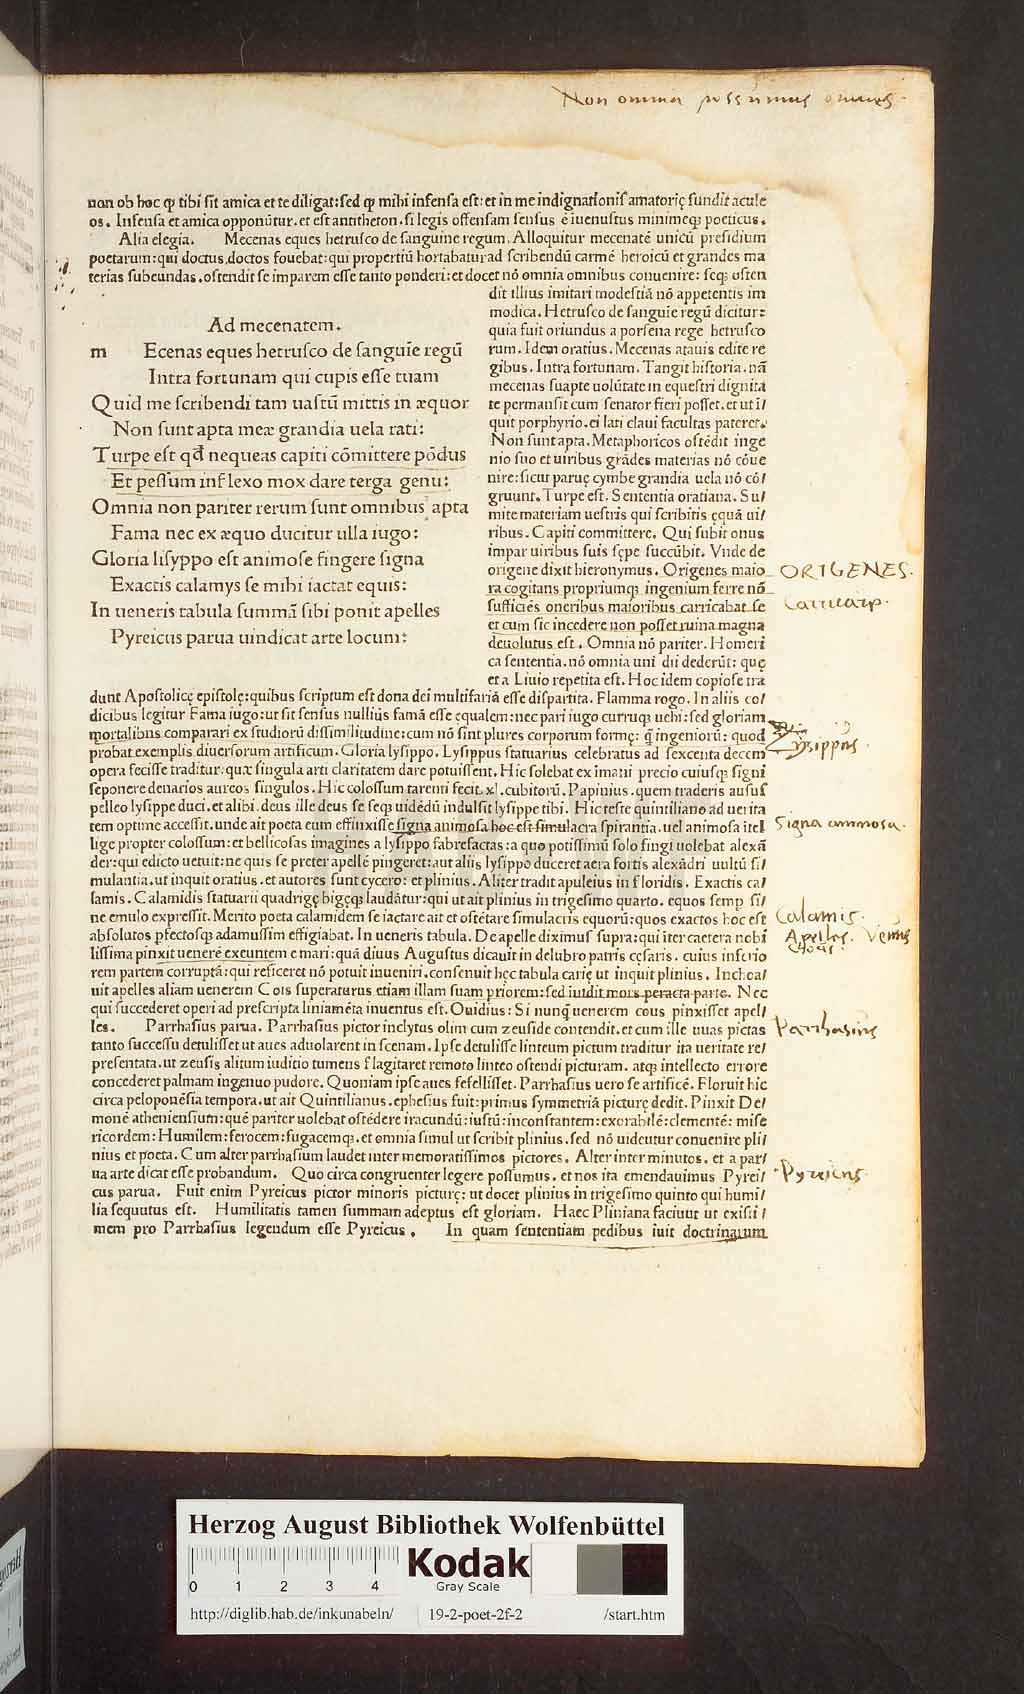 Non omnia possumus omnes.
non ob hoc ꝙ tibi sit amica et te diligat: sed ꝙ mihi infensa est: et in me indignationis amatorię fundit acule
os. Infensa et amica opponūtur. et est antitheton. si legis offensam sensus ē iuenustus minimeqꝫ poeticus.
Alia elegia. Mecenas eques hetrusco de sanguine regum. Alloquitur mecenatē unicū presidium
poetarum: qui doctus doctos fouebat: qui propertiū hortabatur ad scribendū carmē heroicū et grandes ma
terias subeundas. ostendit se imparem esse tanto ponderi: et docet nō omnia omnibus conuenire: seqꝫ osten
dit illius imitari modestiā nō appetentis im
modica. Hetrusco de sanguīe regū dicitur:
quia fuit oriundus a porsena rege hetrusco
rum. Idem oratius. Mecenas atauis edite re
gibus. Intra fortunam. Tangit historia. nā
mecenas suapte uolūtate in equestri dignita
te permansit cum senator fieri posset. et ut i/
quit porphyrio. ei lati claui facultas pateret.
Non sunt apta. Metaphoricos ostēdit inge
nio suo et uiribus grādes materias nō cōue
nire: sicut paruę cymbe grandia uela nō cō/
gruunt. Turpe est. Sententia oratiana. Su/
mite materiam uestris qui scribitis ęquā ui/
ribus. Capiti committere. Qui subit onus
impar uiribus suis sępe succūbit. Vnde de
origene dixit hieronymus. Origenes maio
ra cogitans propriumqꝫ ingenium ferre nō
sufficiēs oneribus maioribus carricabat se
et cum sic incedere non posset ruina magna
deuolutus est. Omnia nō pariter. Homeri
ca sententia. nō omnia uni dii dederūt: quę
et a Liuio repetita est. Hoc idem copiose tra
Ad mecenatem.
m Ecenas eques hetrusco de sanguīe regū
Intra fortunam qui cupis esse tuam
Quid me scribendi tam uastū mittis in æquor
Non sunt apta meæ grandia uela rati:
Turpe est qđ nequeas capiti cōmittere pōdus
Et pessum inflexo mox dare terga genu:
Omnia non pariter rerum sunt omnibus apta
Fama nec ex æquo ducitur ulla iugo:
Gloria lisyppo est animose fingere signa
Exactis calamys se mihi iactat equis:
In ueneris tabula summā sibi ponit apelles
Pyreicus parua uindicat arte locum:
dunt Apostolicę epistolę: quibus scriptum est dona dei multifariā esse dispartita. Flamma rogo. In aliis co/
dicibus legitur Fama iugo: ut sit sensus nullius famā esse ęqualem: nec pari iugo curruqꝫ uehi: sed gloriam
mortalibus comparari ex studiorū dissimilitudine: cum nō sint plures corporum formę: q̄ ingeniorū: quod
probat exemplis diuersorum artificum. Gloria lysippo. Lysippus statuarius celebratus ad sexcenta decem
opera fecisse traditur: quæ singula arti claritatem dare potuissent. Hic solebat ex imani precio cuiusqꝫ signi
seponere denarios aureos singulos. Hic colossum tarenti fecit. xl. cubitorū. Papinius. quem traderis ausus
pelleo lysippe duci. et alibi. deus ille deus se seqꝫ uidēdū indulsit lysippe tibi. Hic teste quintiliano ad uerita
tem optime accessit. unde ait poeta eum effinxisse signa animosa hoc est simulacra spirantia. uel animosa itel
lige propter colossum: et bellicosas imagines a lysippo fabrefactas: a quo potissimū solo fingi uolebat alexā
der: qui edicto uetuit: ne quis se preter apellē pingeret: aut aliis lysippo duceret aera fortis alexādri uultū si/
mulantia. ut inquit oratius. et autores sunt cycero: et plinius. Aliter tradit apuleius in floridis. Exactis ca/
lamis. Calamidis statuarii quadrigę bigęqꝫ laudātur: qui ut ait plinius in trigesimo quarto. equos semp si/
ne emulo expressit. Merito poeta calamidem se iactare ait et ostētare simulacris equorū: quos exactos hoc est
absolutos pfectosqꝫ adamussim effigiabat. In ueneris tabula. De apelle diximus supra: qui iter caetera nobi
lissima pinxit uenerē exeuntem e mari: quā diuus Augustus dicauit in delubro patris cęsaris. cuius inferio
rem partem corruptā: qui reficeret nō potuit inueniri. consenuit hęc tabula carię ut inquit plinius. Inchoa/
uit apelles aliam uenerem Cois superaturus etiam illam suam priorem: sed iuidit mors peracta parte. Nec
qui succederet operi ad prescripta liniamēta inuentus est. Ouidius: Si nunq̄ uenerem cous pinxisset apel/
les. Parrhasius parua. Parrhasius pictor inclytus olim cum zeuside contendit. et cum ille uuas pictas
tanto successu detulisset ut aues aduolarent in scenam. Ipse detulisse linteum pictum traditur ita ueritate re/
presentata. ut zeusis alitum iuditio tumens flagitaret remoto linteo ostendi picturam. atqꝫ intellecto errore
concederet palmam ingenuo pudore. Quoniam ipse aues fefellisset. Parrhasius uero se artificē. Floruit hic
circa peloponēsia tempora. ut ait Quintilianus. ephesius fuit: primus symmetriā picturę dedit. Pinxit De/
monē atheniensium: quē pariter uolebat ostēdere iracundū: iustū: inconstantem: exorabilē: clementē: mise
ricordem: Humilem: ferocem: fugacemqꝫ. et omnia simul ut scribit plinius. sed nō uidentur conuenire pli/
nius et poeta. Cum alter parrhasium laudet inter memoratissimos pictores. Alter inter minutos. et a par/
ua arte dicat esse probandum. Quo circa congruenter legere possumus. et nos ita emendauimus Pyrei/
cus parua. Fuit enim Pyreicus pictor minoris picturę: ut docet plinius in trigesimo quinto qui humi/
lia sequutus est. Humilitatis tamen summam adeptus est gloriam. Haec Pliniana faciunt ut existi/
mem pro Parrhasius legendum esse Pyreicus. In quam sententiam pedibus iuit doctrinarum
ORIGENES.
Lysippus.
Signa animosa.
Calamis.
Apelles. Venus
Chous.
Parrhasius
Pyreicus.
Herzog August Bibliothek Wolfenbüttel
0 1 2 3 4
Kodak
Gray Scale
http://diglib.hab.de/inkunabeln/ 19-2-poet-2f-2 /start.htm